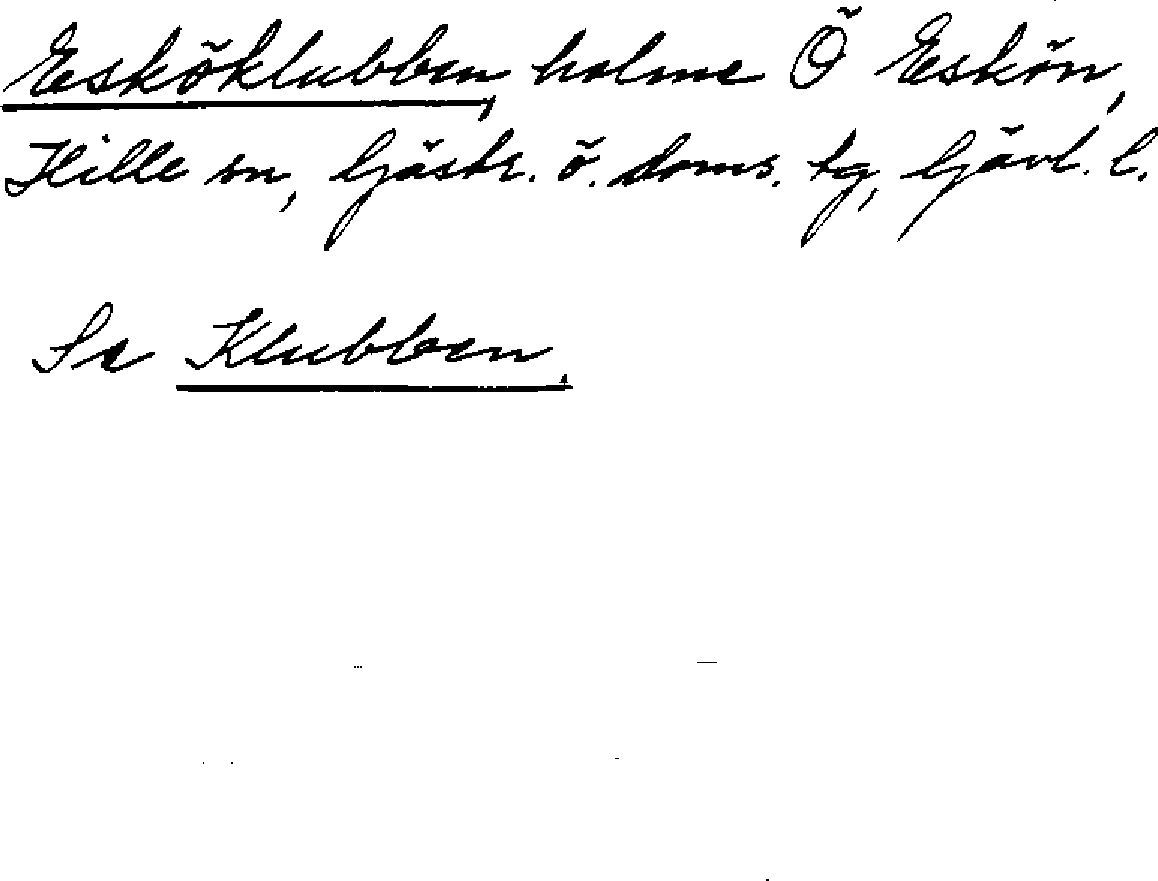 Esköklubben, holme Ö Eskön,
Hille sn, Gästr. ö. doms. tg, Gävl. l.
Se Klubben.